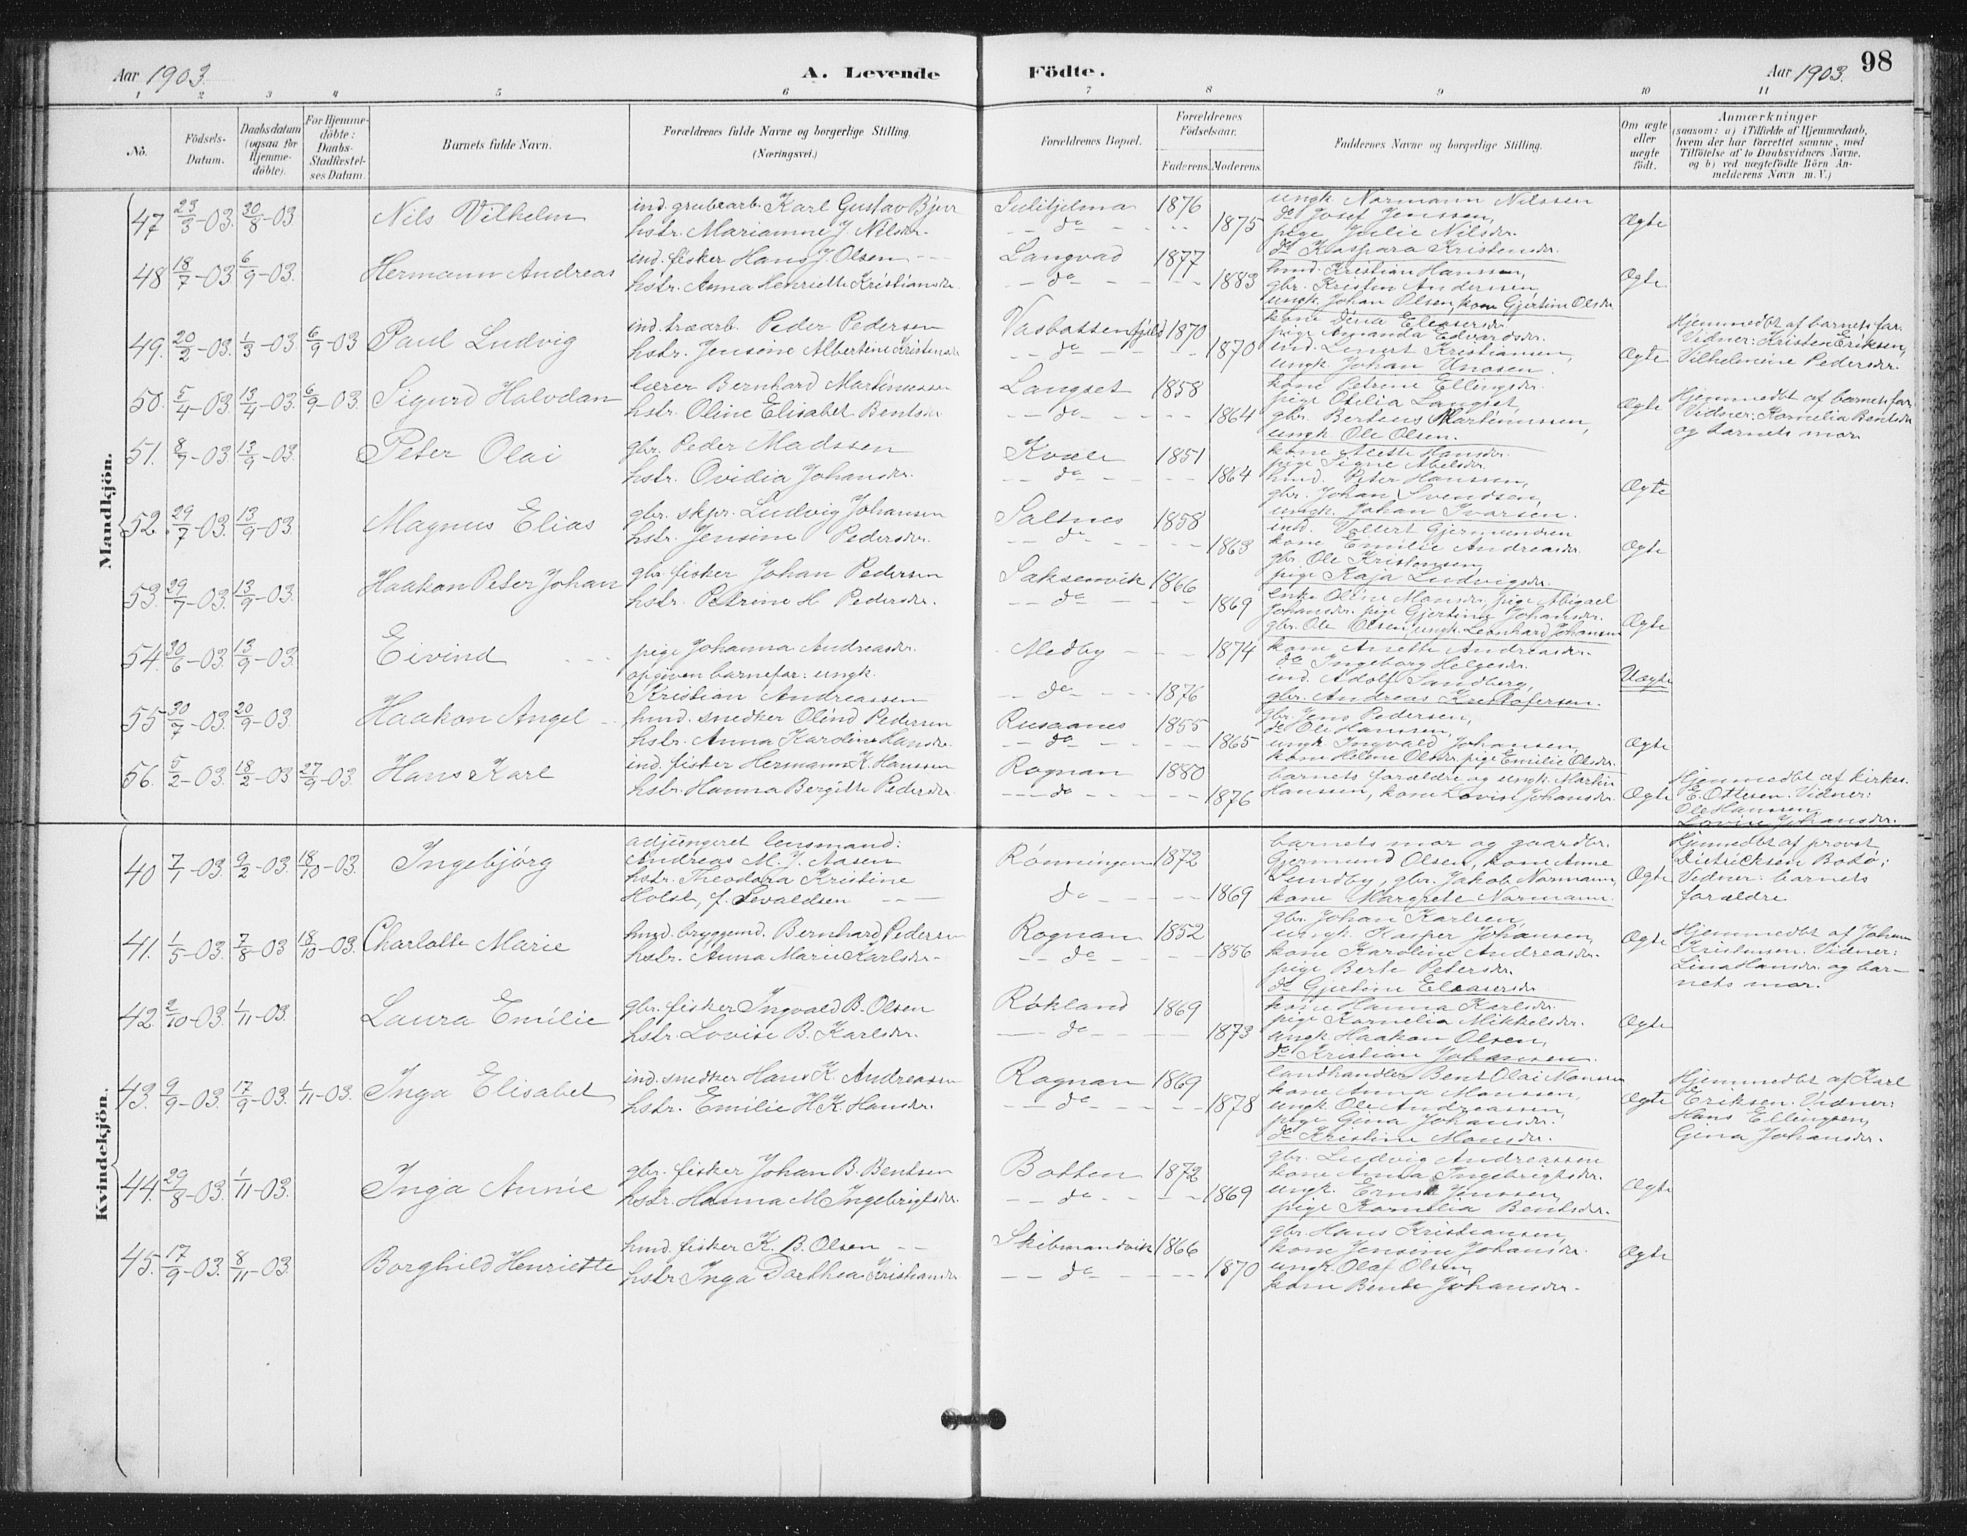 Aar 1903. A. Levende Födte. Aar 1903. 98
1 2 3 4 5 6 7 8 9 10 11
No. Födsels-Datum. Daabsdatum (ogsaa for Hjemme-döbte). For Hjemme-döbte: Daabs-Stadfæstel-ses Datum. Barnets fulde Navn. Forældrenes fulde Navne og borgerlige Stilling. (Næringsvei.) Forældrenes Bopæl. Forældrenes Födselsaar. Faderens. Moderens. Faddernes Navne og borgerlige Stilling. Om ægte eller uægte födt. Anmærkninger (saasom: a) i Tilfælde af Hjemmedaab, hvem der har forrettet samme, med Tilföielse af to Daabsvidners Navne, og b) ved uægtefödte Börn An-melderens Navn m. V.)
Mandkjön.
47 23/3-03. 30/8-03. Nils Vilhelm ind. grubearb. Karl Gustav Bjur Sulitjelma 1876 ungk. Normann Nilssen
do Josef Jenssen,
hstr. Marianne J. Nilsdr. do 1875 pige Julie Nilsdr. Ægte
do Kaspara Kristensdr.
48 18/7-03 6/9-03. Hermann Andreas ind. fisker Hans J. Olsen Langvad 1877 hmd. Kristian Hanssen,
hstr. Anna Henriette Kristiansdr. do 1883 gbr. Kristen Andersen, Ægte
ungk. Johan Olsen, kone Gjertine Olsdr.
49. 20/2-03. 1/3-03 6/9-03 Paul Ludvig ind. træarb. Peder Pedersen 1870 kone Dina Eleasersdr. Hjemmedbt af barnets far.
pige Amanda Edvardsdr. Vidner: Kristen Eriksen,
hstr. Jensine Albertine do 1870 ind. Lenert Kristiansen, Ægte Vilhelmine Pedersdr.
ungk. Johan
50. 5/4-03. 13/4-03. 6/9-03. Sigurd Halvdan lærer Bernhard Martinussen Langset 1858 kone Petrine Ellingsdr. Hjemmedbt af barnets far.
pige Otelia Langset,
hstr. Oline Elisabet Bentsdr. do 1864 gbr. Bertens Martinussen, Ægte Vidner: Kornelia Bentsdr
ungk. Ole Olsen. og barnets mor.
51. 8/7-03 13/9-03. Peter Olai gbr. Peder Madssen Kvæle 1851 kone Mette Hansdr.
pige Signe Abelsdr.
hstr. Ovidia Johansdr. do 1864 hmd. Peter Hanssen, Ægte
gbr. Johan Svendsen,
ungk. Johan Ivarsen.
52. 29/7-03. 13/9-03. Magnus Elias gbr. skpr. Ludvig Johansen Saltnes 1858 ind. Voldert Gjermundsen
hstr. Jensine Pedersdr. do 1863 kone Emilie Andreasdr. Ægte
gbr. Ole Kristensen
pige Kaja Ludvigsdr.
53. 29/7-03. 13/9-03. Haakon Peter Johan gbr. fisker Johan Pedersen Saksenvik 1866 enke Oline Monsdr. pige Abigael
hstr. Petrine H. Pedersdr. do 1869 Johansdr. pige Gjertine Johansdr. Ægte
gbr. Ole Olsen, ungk. Leonhard Johansen
54. 30/6-03. 13/9-03. Eivind pige Johanna Andreasdr. Medby 1874 kone Anette Andreasdr.
do Ingeborg Helgesdr.
opgiven barnefar: ungk. ind. Adolf Sandberg, Uægte
Kristian Andreassen do 1876 gbr. Andreas Kristofersen.
55 30/7-03. 20/9-03. Haakon Angel hmd. snedker Olind Pedersen Rusaanes 1855 gbr. Jens Pedersen,
do Ole Hanssen,
hstr. Anna Karoline Hansdr. do 1865 ungk. Ingvald Johansen, Ægte
kone Helene Olsdr. pige Emilie Olsdr.
56. 5/2-03. 18/2-03 27/9-03. Hans Karl ind. fisker Hermann K. Hanssen Rognan 1880 barnets forældre og ungk. Martin Hjemmedbt af kirkes.
hstr. Hanna Bergitte Pedersdr. do 1876 Hanssen, kone Lovise Johansdr. Ægte E. Ottesen. Vidner:
Ole Hanssen,
Lovise Johansdr.
Kvindekjön.
40 7/1-03. 9/2-03. 18/10-03. Ingebjörg adjungeret lensmand: Rönningen 1872 barnets mor og gaardbr. Hjemmedbt af provst
Andreas M. J. Aasen Gjermund Olsen, kone Anne Dietrichsen Bodö;
hstr. Theodora Kristine do 1869 Sundby, gbr. Jakob Normann, Ægte Vidner: barnets
Holst, f. Sevaldsen kone Margrete Normann. forældre
41. 1/5-03. 7/8-03 18/10-03. Charlotte Marie hmd. bryggemd. Bernhard Pedersen Rognan 1852 gbr. Johan Karlsen, Hjemmedbt af Johan
ungk. Kasper Johansen, Ægte Kristensen. Vidner:
hstr. Anna Marie Karlsdr. do 1856 kone Karoline Andreasdr. Lina Hansdr. og bar-
pige Berte Petersdr. nets mor.
do Gjertine Eleasersdr
42. 9/10-03 1/11-03. Laura Emilie gbr. fisker Ingvald B. Olsen Rökland 1869 kone Hanna Karlsdr.
pige Kornelia Mikkelsdr.
hstr. Lovise B. Karlsdr. do 1873 ungk. Haakon Olsen, Ægte
do Kristian Johansen.
43. 9/9-03. 17/9-03. 1/11-03. Inga Elisabet ind. snedker Hans K. Andreassen Rognan 1869 landhandler Bent Olai Monssen Hjemmedbt af Karl
kone Anna Monssen,
hstr. Emilie H. K. Hansdr. do 1878 ungk. Ole Andreassen, Ægte Eriksen. Vidner:
pige Gina Johansdr. Hans Ellingsen,
do Kristine Monsdr. Gina Johansdr.
44. 29/8-03. 1/11-03. Inga Annie gbr. fisker Johan B. Bentsen Botten 1872 gbr. Ludvig Andreassen
kone Anna Ingebrigtsdr.
hstr. Hanna M. Ingebrigtsdr. do 1869 ungk. Ernst Jenssen, Ægte
pige Kornelia Bentsdr.
45. 17/9-03. 8/11-03. Borghild Henriette hmd. fisker K. B. Olsen Skibmandvik 1866 gbr. Hans Kristiansen,
kone Jensine Johansdr.
hstr. Inga Dorthea Kristiansdr. do 1870 ungk. Olaf Olsen, Ægte
kone Bente Johansdr.